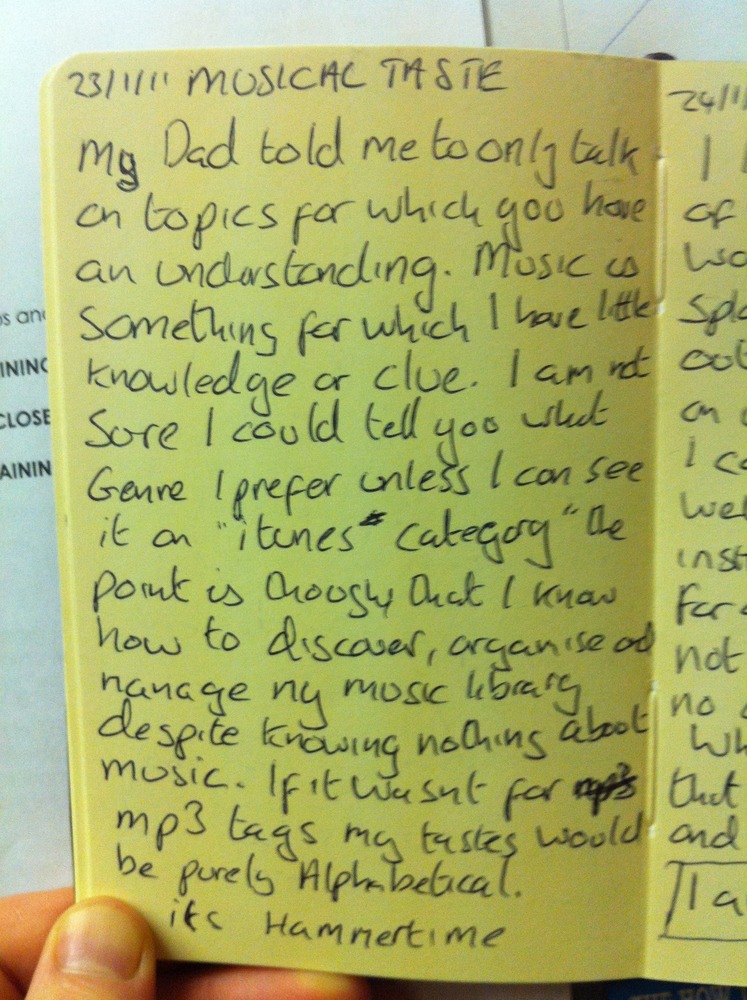 23/1/11 MUSICAL TASTE
My Dad told me to only talk
on topics for which you have
an understanding. Music is
Something for which I have little
knowledge or clue. I am not
Sure I could tell you what
Genre I prefer unless I can see
it on "itunes category" the
point is though that I know
how to discover, organise and
manage my music library
despite knowing nothing about
music. If it wasnt for mp3
mp3 tags my tastes would
be purely Alphabetical.
its Hammertime
24/1/
I
of
out
on
I
for
not
no
that
and
os and
INING
CLOSE
AINING